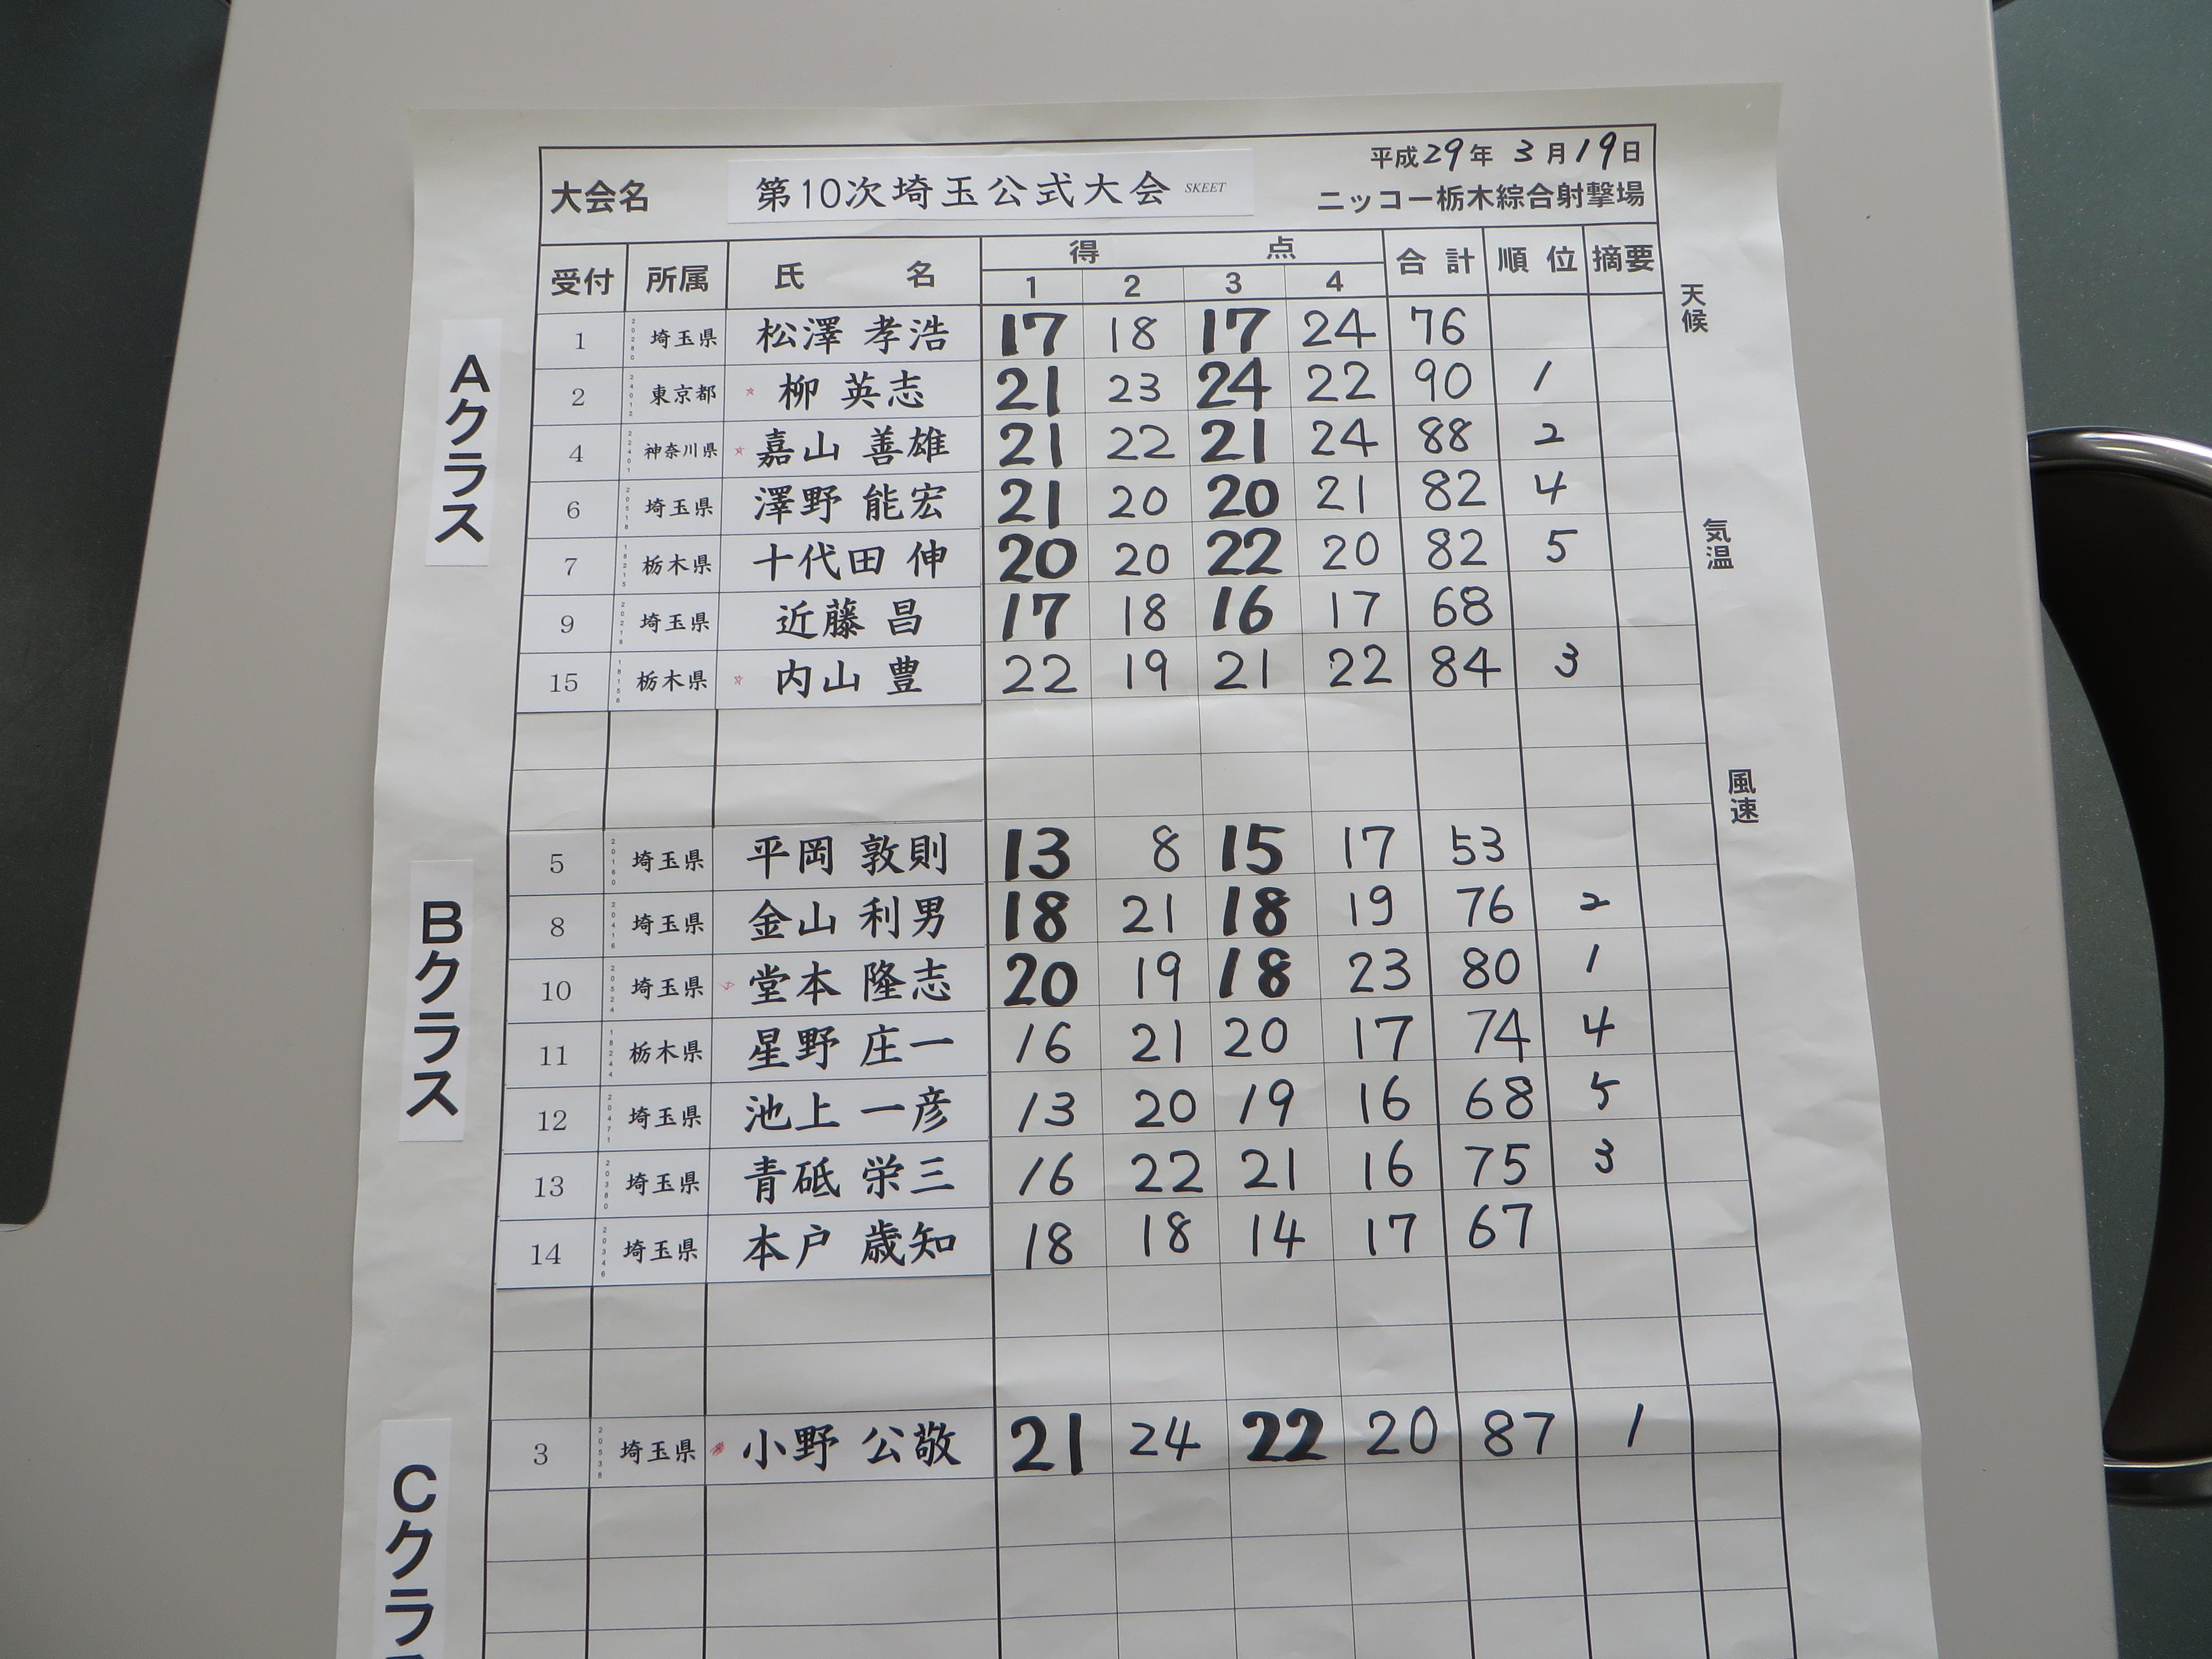 平成29年 3月19日
大会名 第10次埼玉公式大会 SKEET ニッコー栃木綜合射撃場
受付 所属 氏名 得点 合計 順位 摘要
1 2 3 4
天候
気温
風速
Aクラス
1 埼玉県 松澤 孝浩 17 18 17 24 76
2 東京都 ☆ 柳 英志 21 23 24 22 90 1
4 神奈川県 ☆ 嘉山 善雄 21 22 21 24 88 2
6 埼玉県 澤野 能宏 21 20 20 21 82 4
7 栃木県 十代田 伸 20 20 22 20 82 5
9 埼玉県 近藤 昌 17 18 16 17 68
15 栃木県 ☆ 内山 豊 22 19 21 22 84 3
Bクラス
5 埼玉県 平岡 敦則 13 8 15 17 53
8 埼玉県 金山 利男 18 21 18 19 76 2
10 埼玉県 堂本 隆志 20 19 18 23 80 1
11 栃木県 星野 庄一 16 21 20 17 74 4
12 埼玉県 池上 一彦 13 20 19 16 68 5
13 埼玉県 青砥 栄三 16 22 21 16 75 3
14 埼玉県 本戸 歳知 18 18 14 17 67
Cクラ
3 埼玉県 小野 公敬 21 24 22 20 87 1